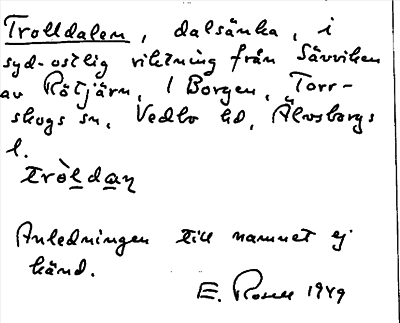 Trolldalen, dalsänka, i
syd-ostlig riktning från Sävviken
av Rötjärn, i Borgen, Torr-
skogs sn, Vedbo hd, Älvsborgs
l.
tròldaṇ
Anledningen till namnet ej
känd.
E. Rosell 1949